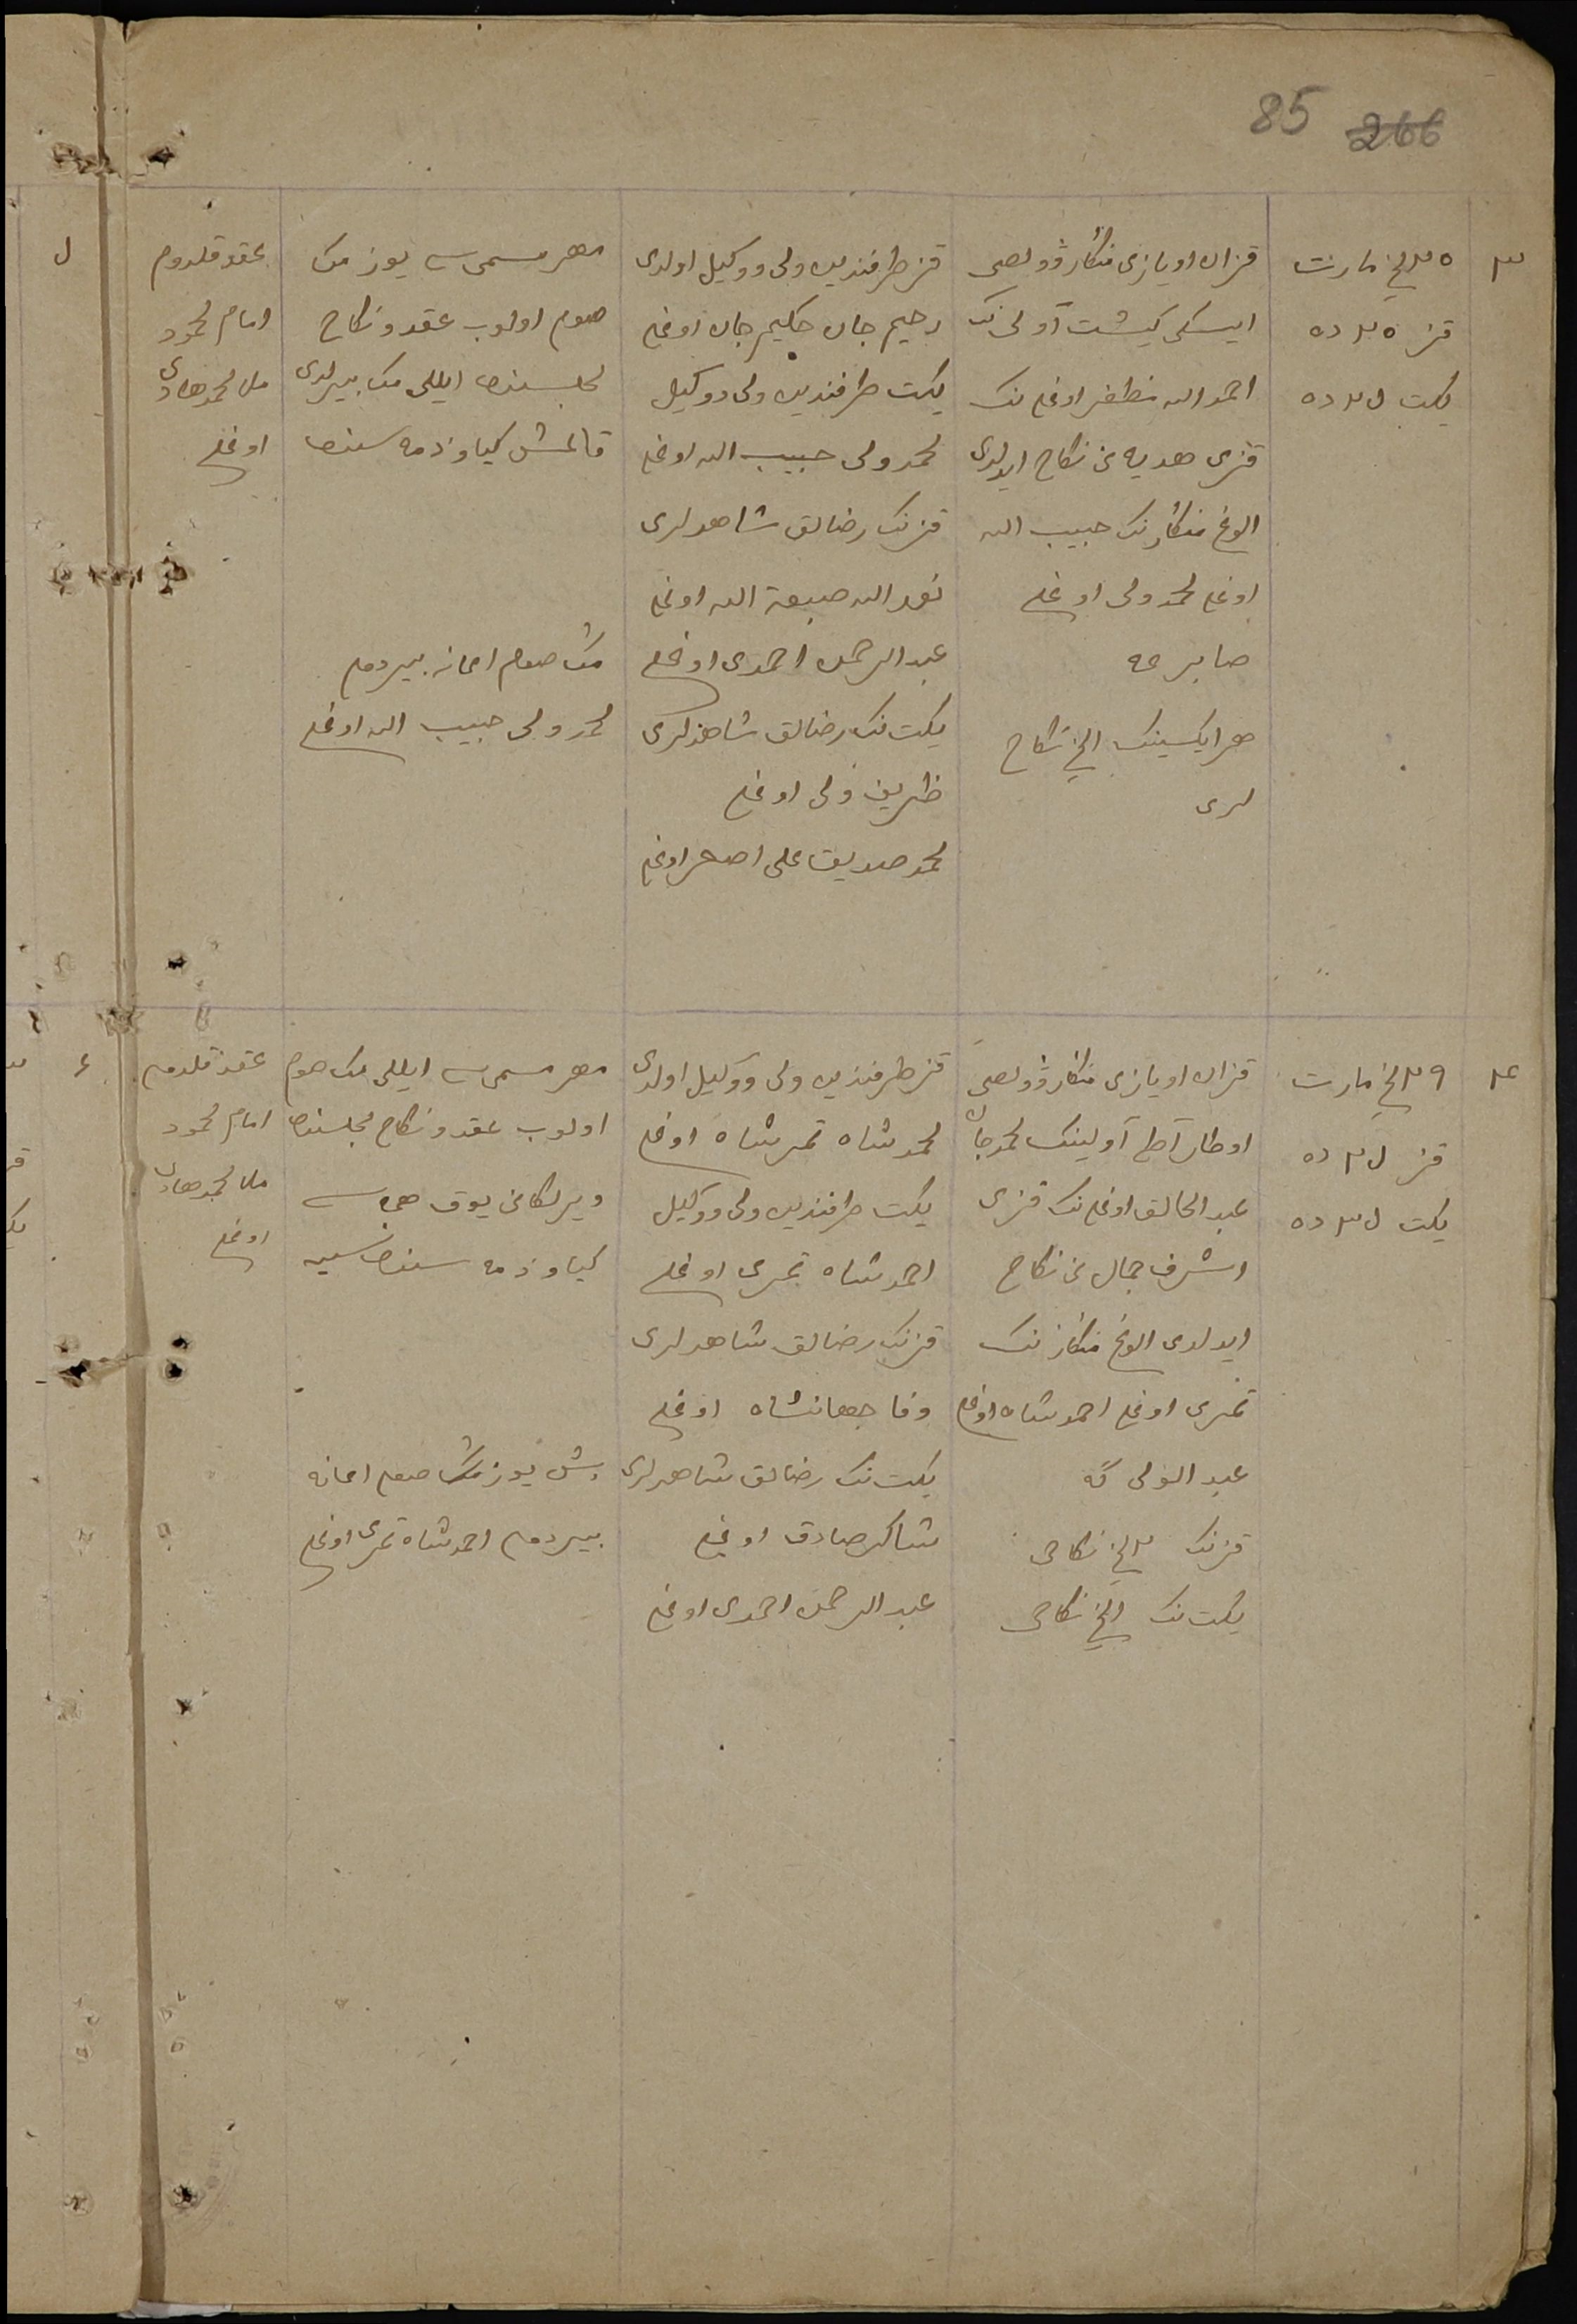 85 266
٣
٢٥ نچی مارت
قز ٢٥ ده
یكت ٢١ ده
قزان اویازی منكار ڤولصی
ایسكی كیشت آولی نك
احمد الله مظفر اوغلی نك
قزی هدیه نی نكاح ایدلدی
الوغ منكار نك حبیب الله
اوغلی محمد ولی اوغلی
صابر غه
هر ایكسینك ١ نچی نكاح
لری
قز طرفندین ولی و وكیل اولدی
رحیم جان حكیم جان اوغلی
یكت طرفندین ولی و وكیل
محمد ولی حبیب الله اوغلی
قز نك رضالق شاهدلری
نور الله صبغة الله اوغلی
عبد الرحمن احمدی اوغلی
یكت نك رضالق شاهدلری
ظریف ولی اوغلی
محمد صدیق علی اصغر اوغلی
مهر مسمی سی یوز منك
صوم اولوب عقد و نكاح
مجلسنده ایللی منك بیرلدی
قالمش كیاو ذمه سنده
منك صوم اعانه بیردم
محمد ولی حبیب الله اوغلی
عقد قلدوم
امام محمود
ملا محمد هادی
اوغلی
٤
٢٩ نچی مارت
قز ٢١ ده
یكت ٢١ ده
قزان اویازی منكار ڤولصی
اوطار آطی آولینك محمد جان
عبد الخالق اوغلی نك قزی
اشرف جمال نی نكاح
ایدلدی الوغ منكار نك
تمری اوغلی احمد شاه اوغلی
عبد الولی گه
قز نك ٢ نچی نكاحی
یكت نك ١ نچی نكاحی
قز طرفندین ولی و وكیل اولدی
محمد شاه تمر شاه اوغلی
یكت طرفندین ولی و وكیل
احمد شاه تمری اوغلی
قز نك رضالق شاهدلری
وفا جهانشاه اوغلی
یكت نك رضالق شاهدلری
شاكر صادق اوغلی
عبد الرحمن احمدی اوغلی
مهر مسمی سی ایللی منك صوم
اولوب عقد و نكاح مجلسنده
ویرلكانی یوق همه سی
كیاو ذمه سنده
بش یوز منك صوم اعانه
بیردم احمد شاه تمری اوغلی
عقد قلدم
امام محمود
ملا محمد هادی
اوغلی